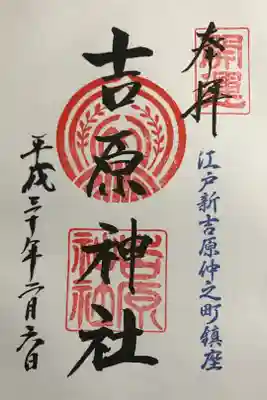 開運
奉拝
江戸新吉原仲之町鎮座
吉原神社
吉原神社
平成三十年二月六日